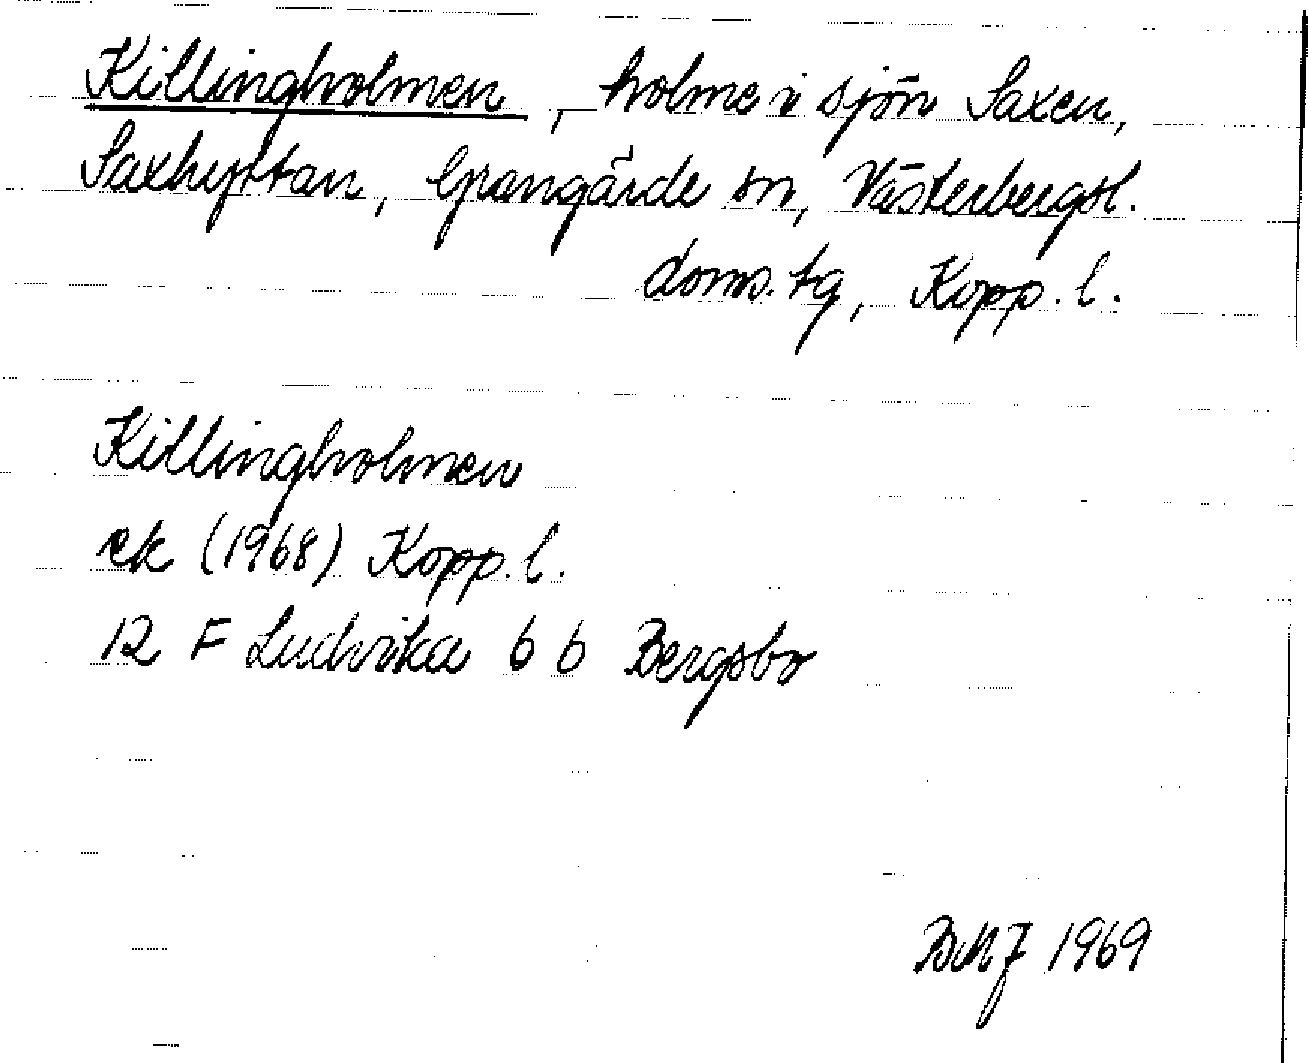 Killingholmen, holme i sjön Saxen,
Saxhyttan, Grangärde sn, Västerbergsl.
doms. tg, Kopp. l.
Killingholmen
ek (1968) Kopp. l.
12 F Ludvika 6 b Bergsbo
1969